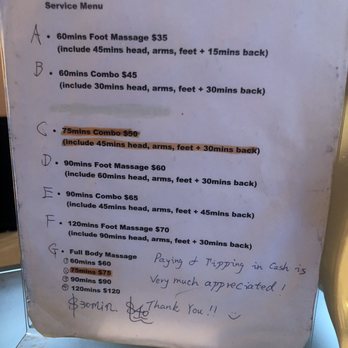 Service Menu
A • 60mins Foot Massage $35
(include 45mins head, arms, feet + 15mins back)
B • 60mins Combo $45
(include 30mins head, arms, feet + 30mins back)
C • 75mins Combo $50
(include 45mins head, arms, feet + 30mins back)
D • 90mins Foot Massage $60
(include 60mins head, arms, feet + 30mins back)
E • 90mins Combo $65
(include 45mins head, arms, feet + 45mins back)
F • 120mins Foot Massage $70
(include 90mins head, arms, feet + 30mins back)
G • Full Body Massage
① 60mins $60
② 75mins $75
③ 90mins $90
④ 120mins $120
30min $40
Paying & Tipping in Cash is
Very much appreciated!
Thank You!!